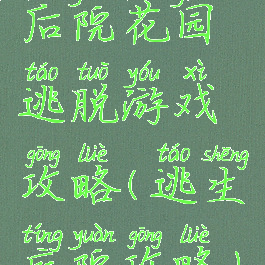 后院花园
táo tuō yóu xì
逃脱游戏
gōng lüè táo shēng
攻略(逃生
tíng yuàn gōng lüè